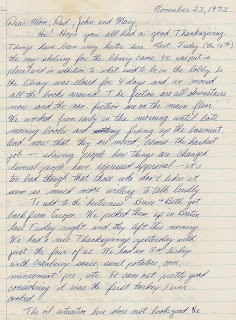 November 23, 1973
Dear Mom, Dad, John and Mary,
Hi! Hope you all had a good Thanksgiving.
Things have been very hectic here. Last Friday (the 16th)
the new shelving for the library came. It was put in
place and in addition to what used to be in the lobby, so
the library was closed for 4 days and we moved
all the books around. The fiction are all downstairs
now and the non-fiction are on the main floor.
We worked from early in the morning until late
moving books and fixing up the basement.
And now that they are moved, comes the hardest
job - showing people how things are changed.
Several people have expressed approval - it's
too bad though that those who don't like it
seem so much more willing to talk loudly.
To add to the "hecticness" Bruce & Ruth got
back from Europe. We picked them up in Boston
last Friday night and they left this morning.
We had a nice Thanksgiving yesterday with
just the four of us. We had an turkey
with cranberry sauce, sweet potatoes, corn,
mincemeat pie, etc. It came out pretty good
considering it was the first turkey I ever
cooked!
The oil situation here does not look good. We